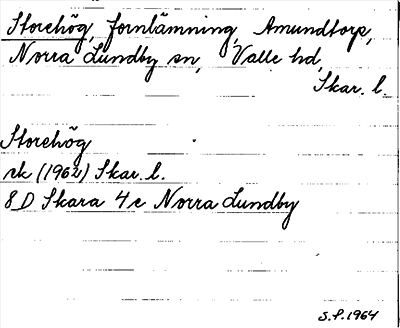 Storehög, fornlämning, Amundtorp,
Norra Lundby sn, Valle hd,
Skar. l.
Storehög
rk (1962) Skar. l.
8 D Skara 4 e Norra Lundby
S.P. 1964